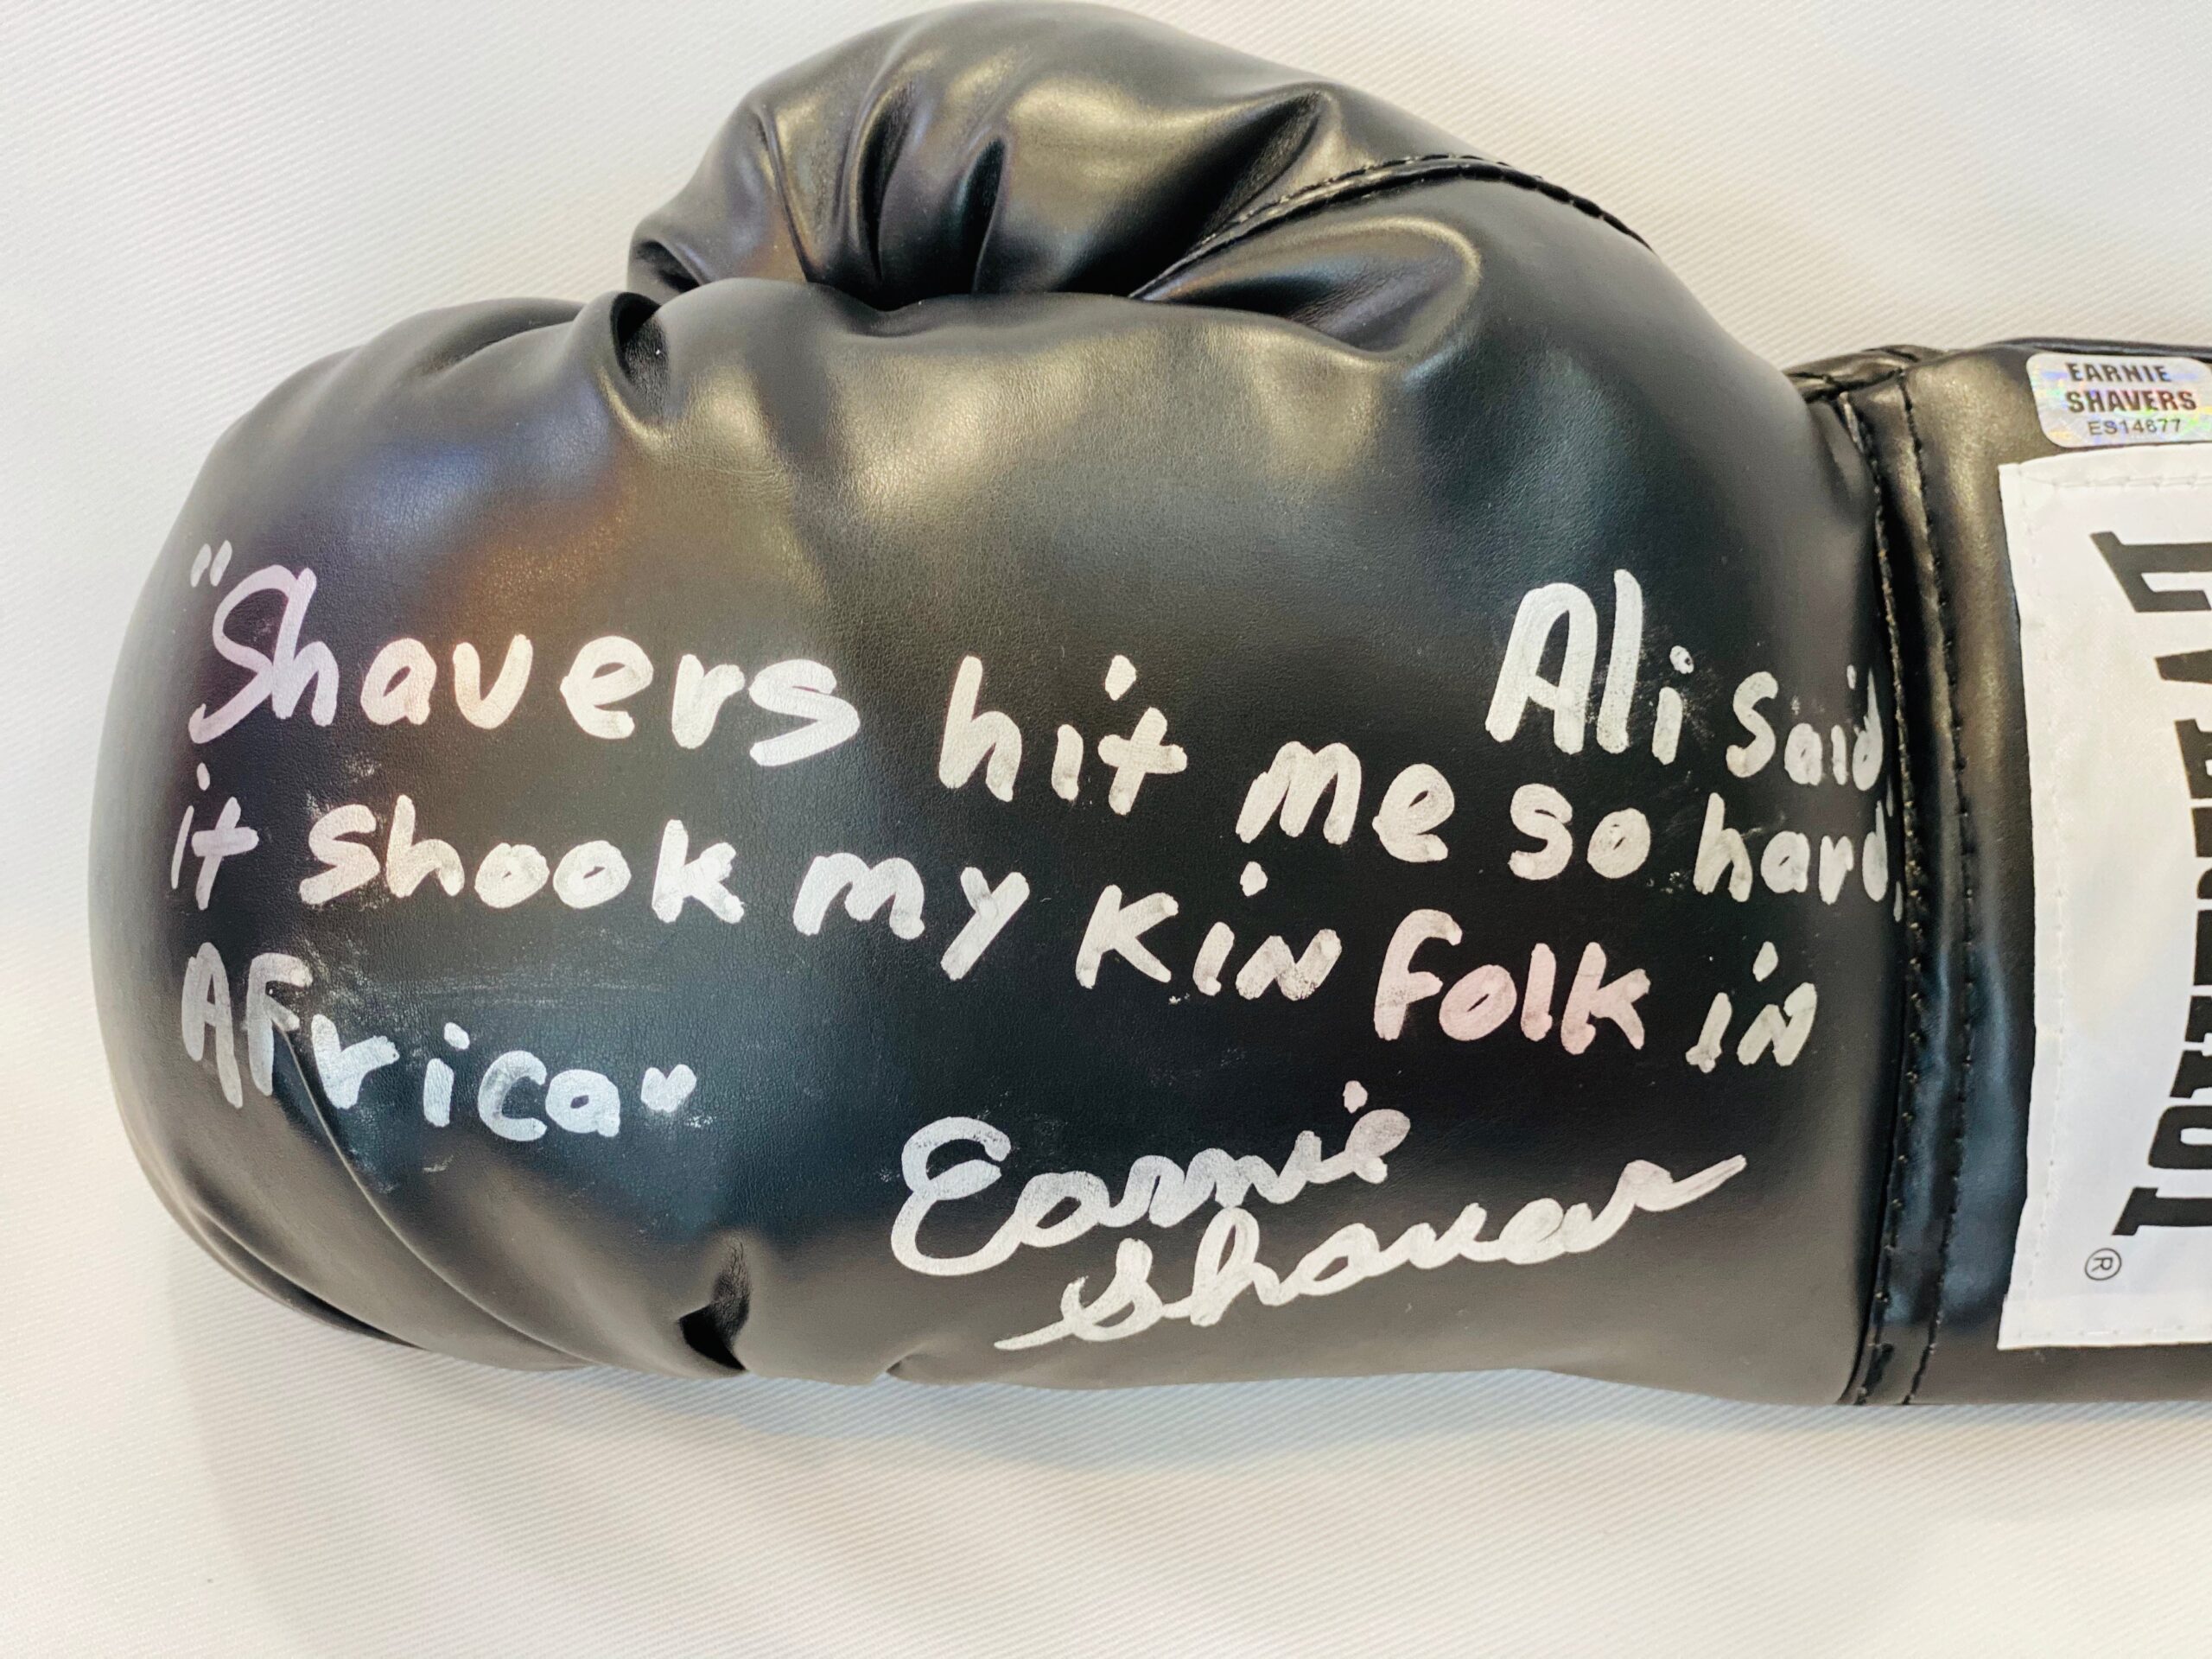 Ali said,
"Shavers hit me so hard,
it shook my kin folk in
Africa"
Earnie
Shavers
EARNIE
SHAVERS
ES14677
®